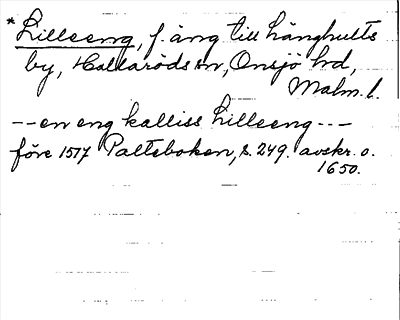 *Lilleeng, f. äng till Långhults
by, Hallaröds sn, Onsjö hd,
Malm. l.
-- en eng kalliss Lilleeng ---
före 1517 Palteboken, s. 249. avskr. o.
1650.